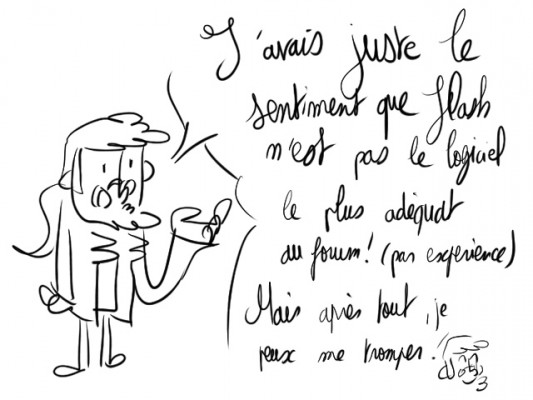 J'avais juste le
sentiment que flash
n'est pas le logiciel
le plus adéquat
du forum! (par expérience)
Mais après tout, je
peux me tromper!